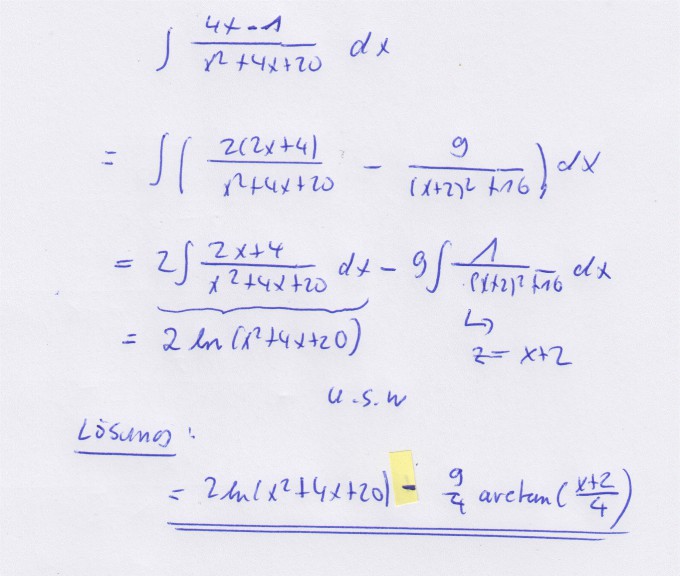 ∫ (4x-1)/(x²+4x+20) dx
= ∫( 2(2x+4)/(x²+4x+20) - 9/((x+2)²+16) ) dx
= 2∫ (2x+4)/(x²+4x+20) dx - 9∫ 1/((x+2)²+16) dx
= 2 ln(x²+4x+20) ↳ z = x+2
u.s.w
Lösung:
= 2 ln(x²+4x+20) - 9/4 arctan((x+2)/4)